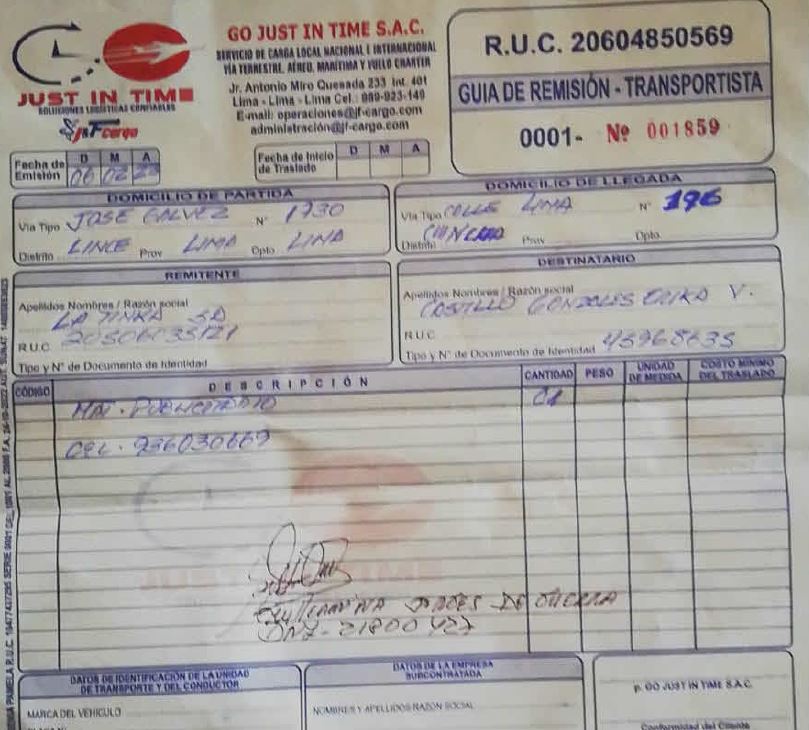 JUST IN TIME
SOLUCIONES LOGÍSTICAS CONFIABLES
cargo
GO JUST IN TIME S.A.C.
SERVICIO DE CARGA LOCAL NACIONAL E INTERNACIONAL
VÍA TERRESTRE, AÉREO, MARÍTIMA Y VUELO CHARTER
Jr. Antonio Miro Quesada 233 Int. 401
Lima - Lima - Lima Cel.: 989-923-149
E-mail: operaciones@jf-cargo.com
administración@jf-cargo.com
R.U.C. 20604850569
GUIA DE REMISIÓN - TRANSPORTISTA
0001- Nº 001859
Fecha de Emisión D M A
06 02 23
Fecha de Inicio de Traslado D M A
DOMICILIO DE PARTIDA
Vía Tipo JOSE GALVEZ Nº 1730
Distrito LINCE Prov LIMA Dpto LIMA
DOMICILIO DE LLEGADA
Vía Tipo CALLE LIMA Nº 196
Distrito CHINCHA Prov Dpto.
REMITENTE
Apellidos Nombres / Razón social
LA TINKA SA
R.U.C. 20506035121
Tipo y Nº de Documento de Identidad
DESTINATARIO
Apellidos Nombres / Razón social
CASTILLO GONZALES ERIKA V.
R.U.C
Tipo y Nº de Documento de Identidad 43968635
CÓDIGO DESCRIPCIÓN CANTIDAD PESO UNIDAD DE MEDIDA COSTO MÍNIMO DEL TRASLADO
MAT. PUBLICITARIO 01
CEL. 936030669
JUST IN TIME
DE
DNI - 21800427
DATOS DE IDENTIFICACIÓN DE LA UNIDAD
DE TRANSPORTE Y DEL CONDUCTOR
MARCA DEL VEHICULO
DATOS DE LA EMPRESA
SUBCONTRATADA
NOMBRES Y APELLIDOS RAZÓN SOCIAL
p. GO JUST IN TIME S.A.C.
Conformidad del Cliente